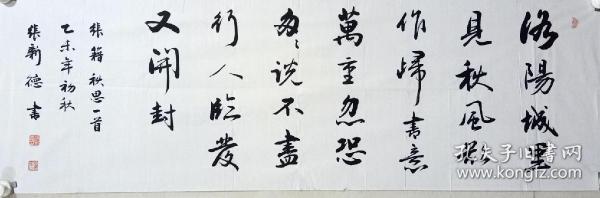 洛陽城里
見秋風欲
作歸書意
萬重忽恐
匆〻說不盡
行人臨發
又開封
張籍秋思一首
乙未年初秋
張新德書
孔夫子旧书网
www.kongfz.com